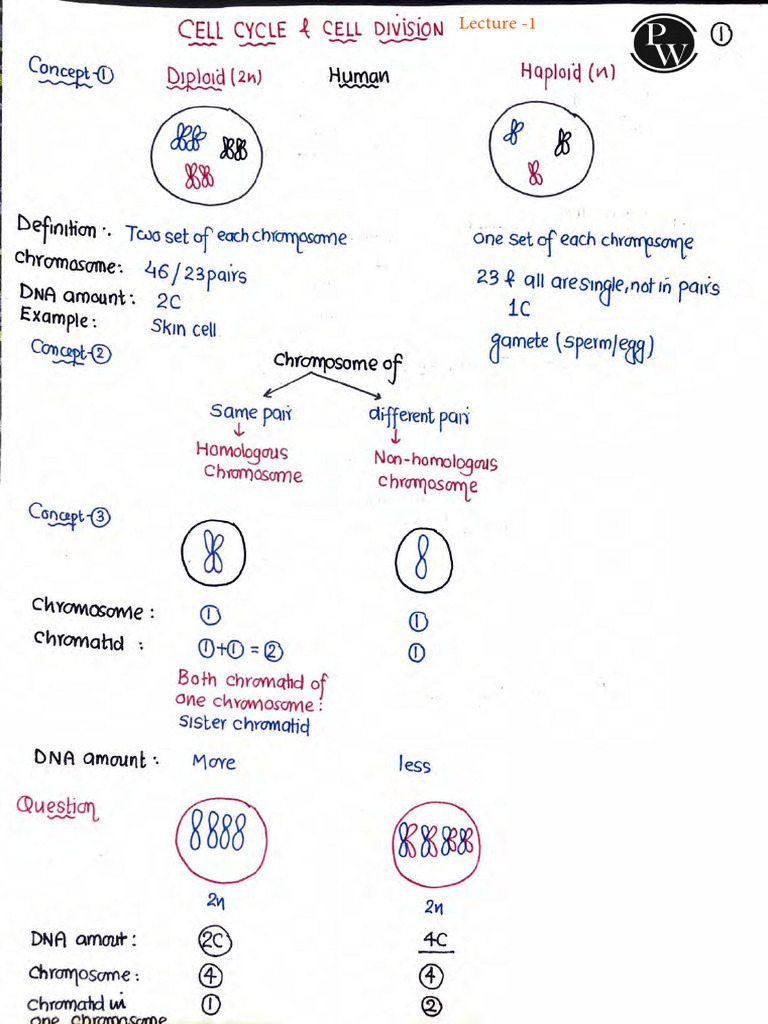 CELL CYCLE & CELL DIVISION Lecture -1
PW
①
Concept-① Diploid (2n) Human Haploid (n)
Definition:. Two set of each chromosome one set of each chromosome
chromosome: 46/23 pairs 23 & all are single, not in pairs
DNA amount: 2C 1C
Example: Skin cell gamete (sperm/egg)
Concept-② Chromosome of
Same pair different pair
Homologous Chromosome Non-homologous chromosome
Concept-③
Chromosome: ① ①
Chromatid : ①+①=② ①
Both chromatid of
one chromosome:
Sister chromatid
DNA amount:. More less
Question
2n 2n
DNA amout: 2C 4C
Chromosome: ④ ④
Chromatid in ① ②
one chromosome